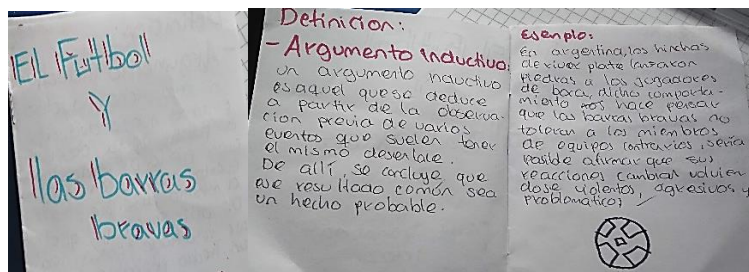 EL Futbol
Y
las barras
bravas
Definicion:
- Argumento inductivo:
un argumento nductivo
es aquel que se deduce
a partir de la observa-
cion previa de varios
eventos que suelen tener
el mismo desenlace.
De allí, se concluye que
ese resultado común sea
un hecho probable.
Ejemplo:
En argentina, los hinchas
de river plate lanzaron
piedras a los jugadores
de boca, dicho comporta-
miento nos hace pensar
que las barras bravas no
toleran a los miembros
de equipos contrarios, seria
posible afirmar que sus
reacciones cambian volvien
dose violentos, agresivos y
problematicos